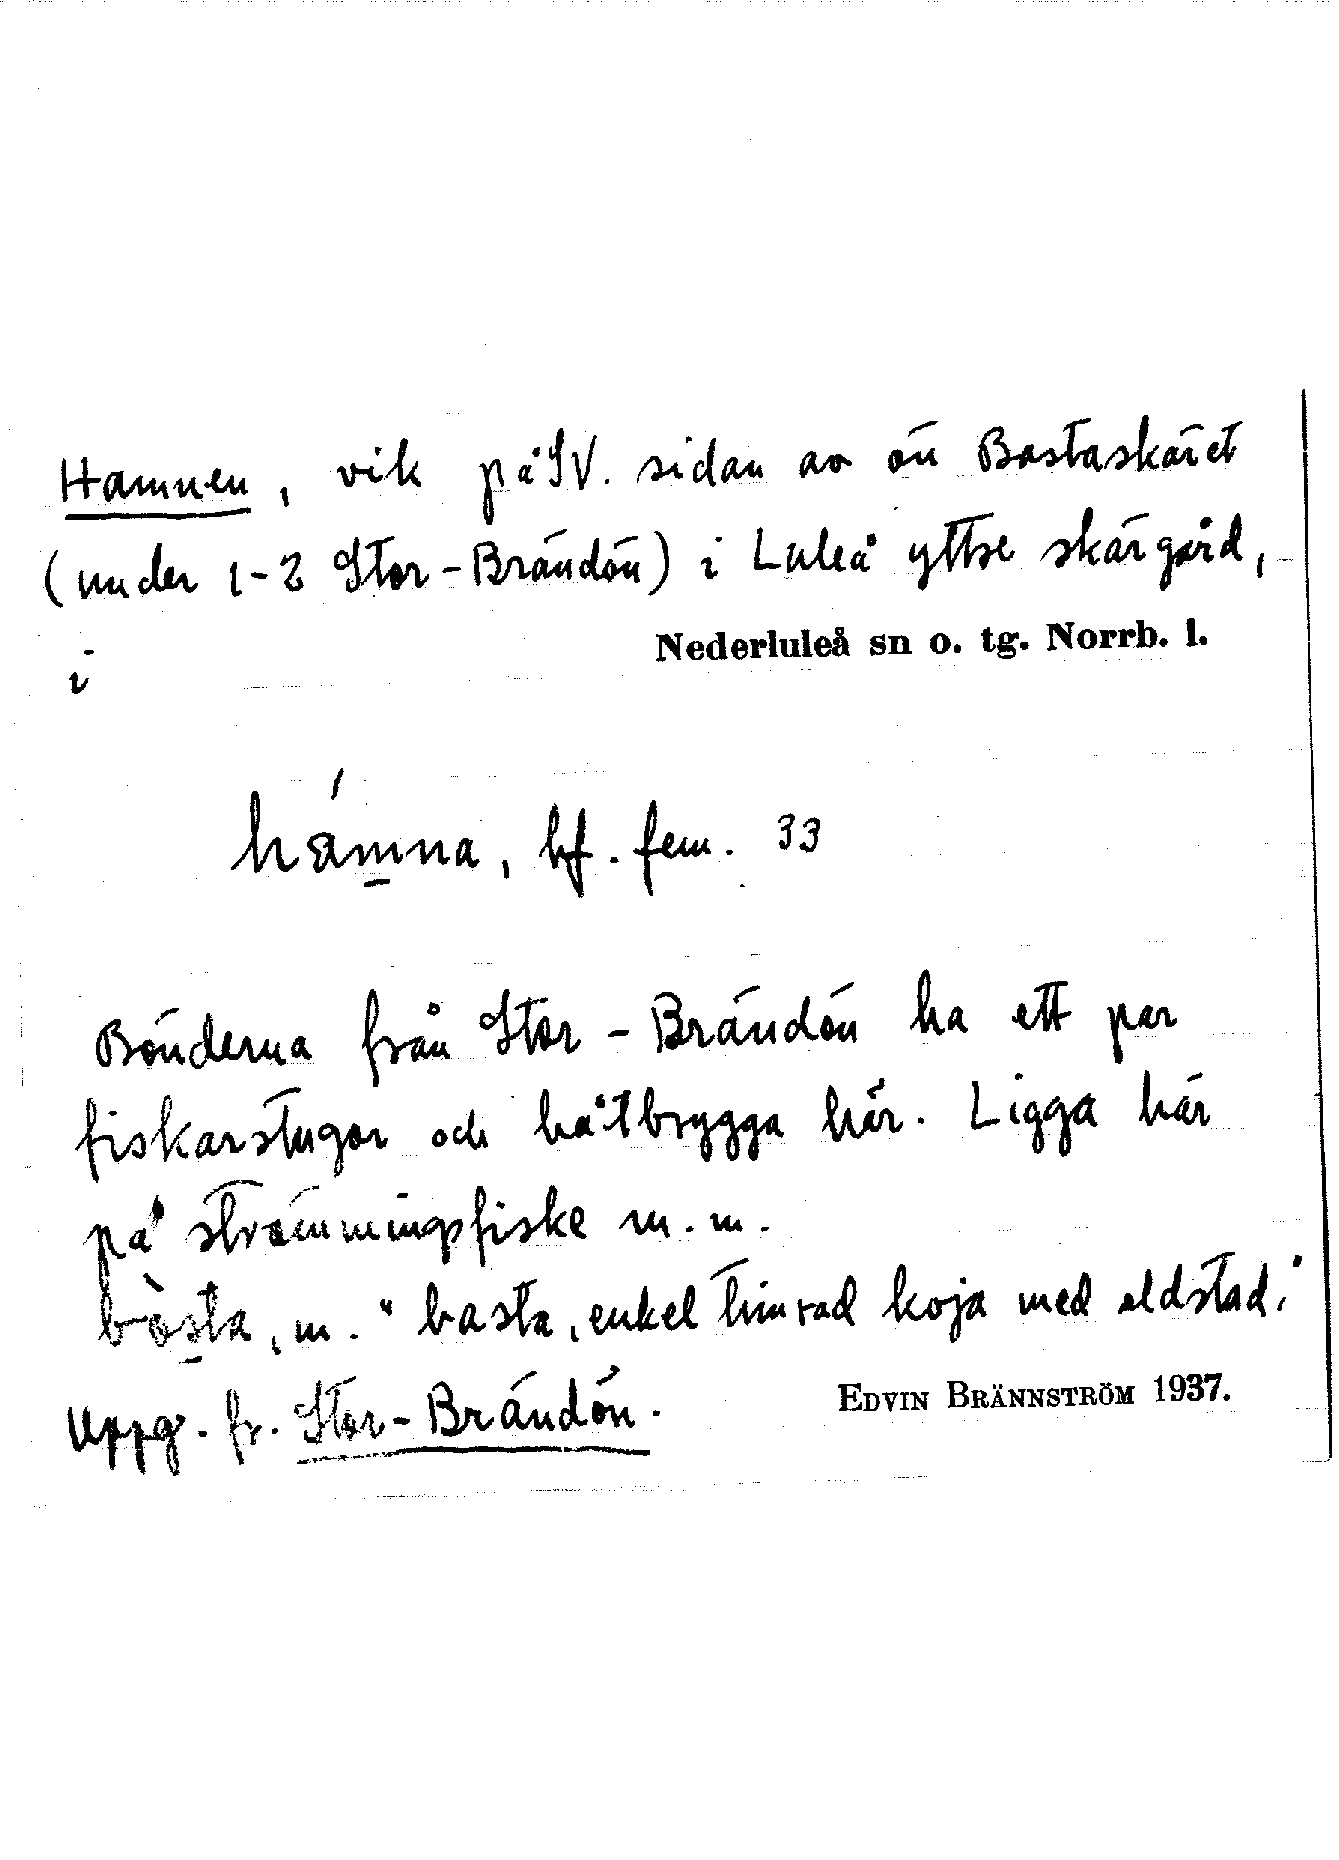 Hamnen, vik på SV. sidan av ön Bastaskäret
(under 1-2 Stor-Brändön) i Luleå yttre skärgård,
i Nederluleå sn o. tg. Norrb. l.
hámna, bf. fem. 33
Bönderna från Stor-Brändön ha ett par
fiskarstugor och båtbrygga här. Ligga här
på strömmingsfiske m.m.
bàsta, m. "basta, enkel timrad koja med eldstad."
Uppg. fr. Stor-Brändön.
EDVIN BRÄNNSTRÖM 1937.